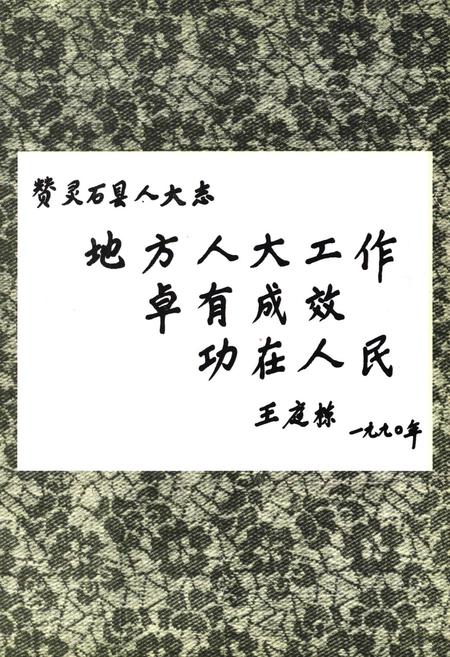 赞灵石县人大志
地方人大工作
卓有成效
功在人民
王庭栋 一九九〇年